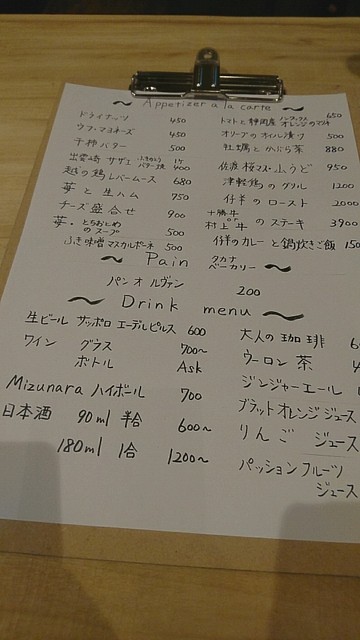 ~ Appetizer a la carte ~
ドライナッツ 450
ウフ・マヨネーズ 450
干柿バター 500
出雲崎 サザエ ふきのとうバター焼 1ケ 400
越の鶏レバームース 680
苺と生ハム 750
チーズ盛合せ 900
苺・とちおとめのスープ 500
ふき味噌マスカルポーネ 500
トマトと静岡産 オレンジのマリネ 650
オリーブのオイル漬け 500
牡蠣とかぶら茶 880
佐渡桜マス・ふうど 950
津軽鴨のグリル 1200
仔羊のロースト 2000
十勝牛 or 村上牛 のステーキ 3900
仔羊のカレーと鍋炊きご飯 150
~ Pain ~
パン オ ルヴァン
タカナベーカリー
200
~ Drink menu ~
生ビール サッポロ エーデルピルス 600
ワイン グラス 700~
ボトル Ask
Mizunara ハイボール 700
日本酒 90ml 半合 600~
180ml 1合 1200~
大人の珈琲
ウーロン茶
ジンジャーエール
ブラッドオレンジジュース
りんごジュース
パッションフルーツ
ジュース